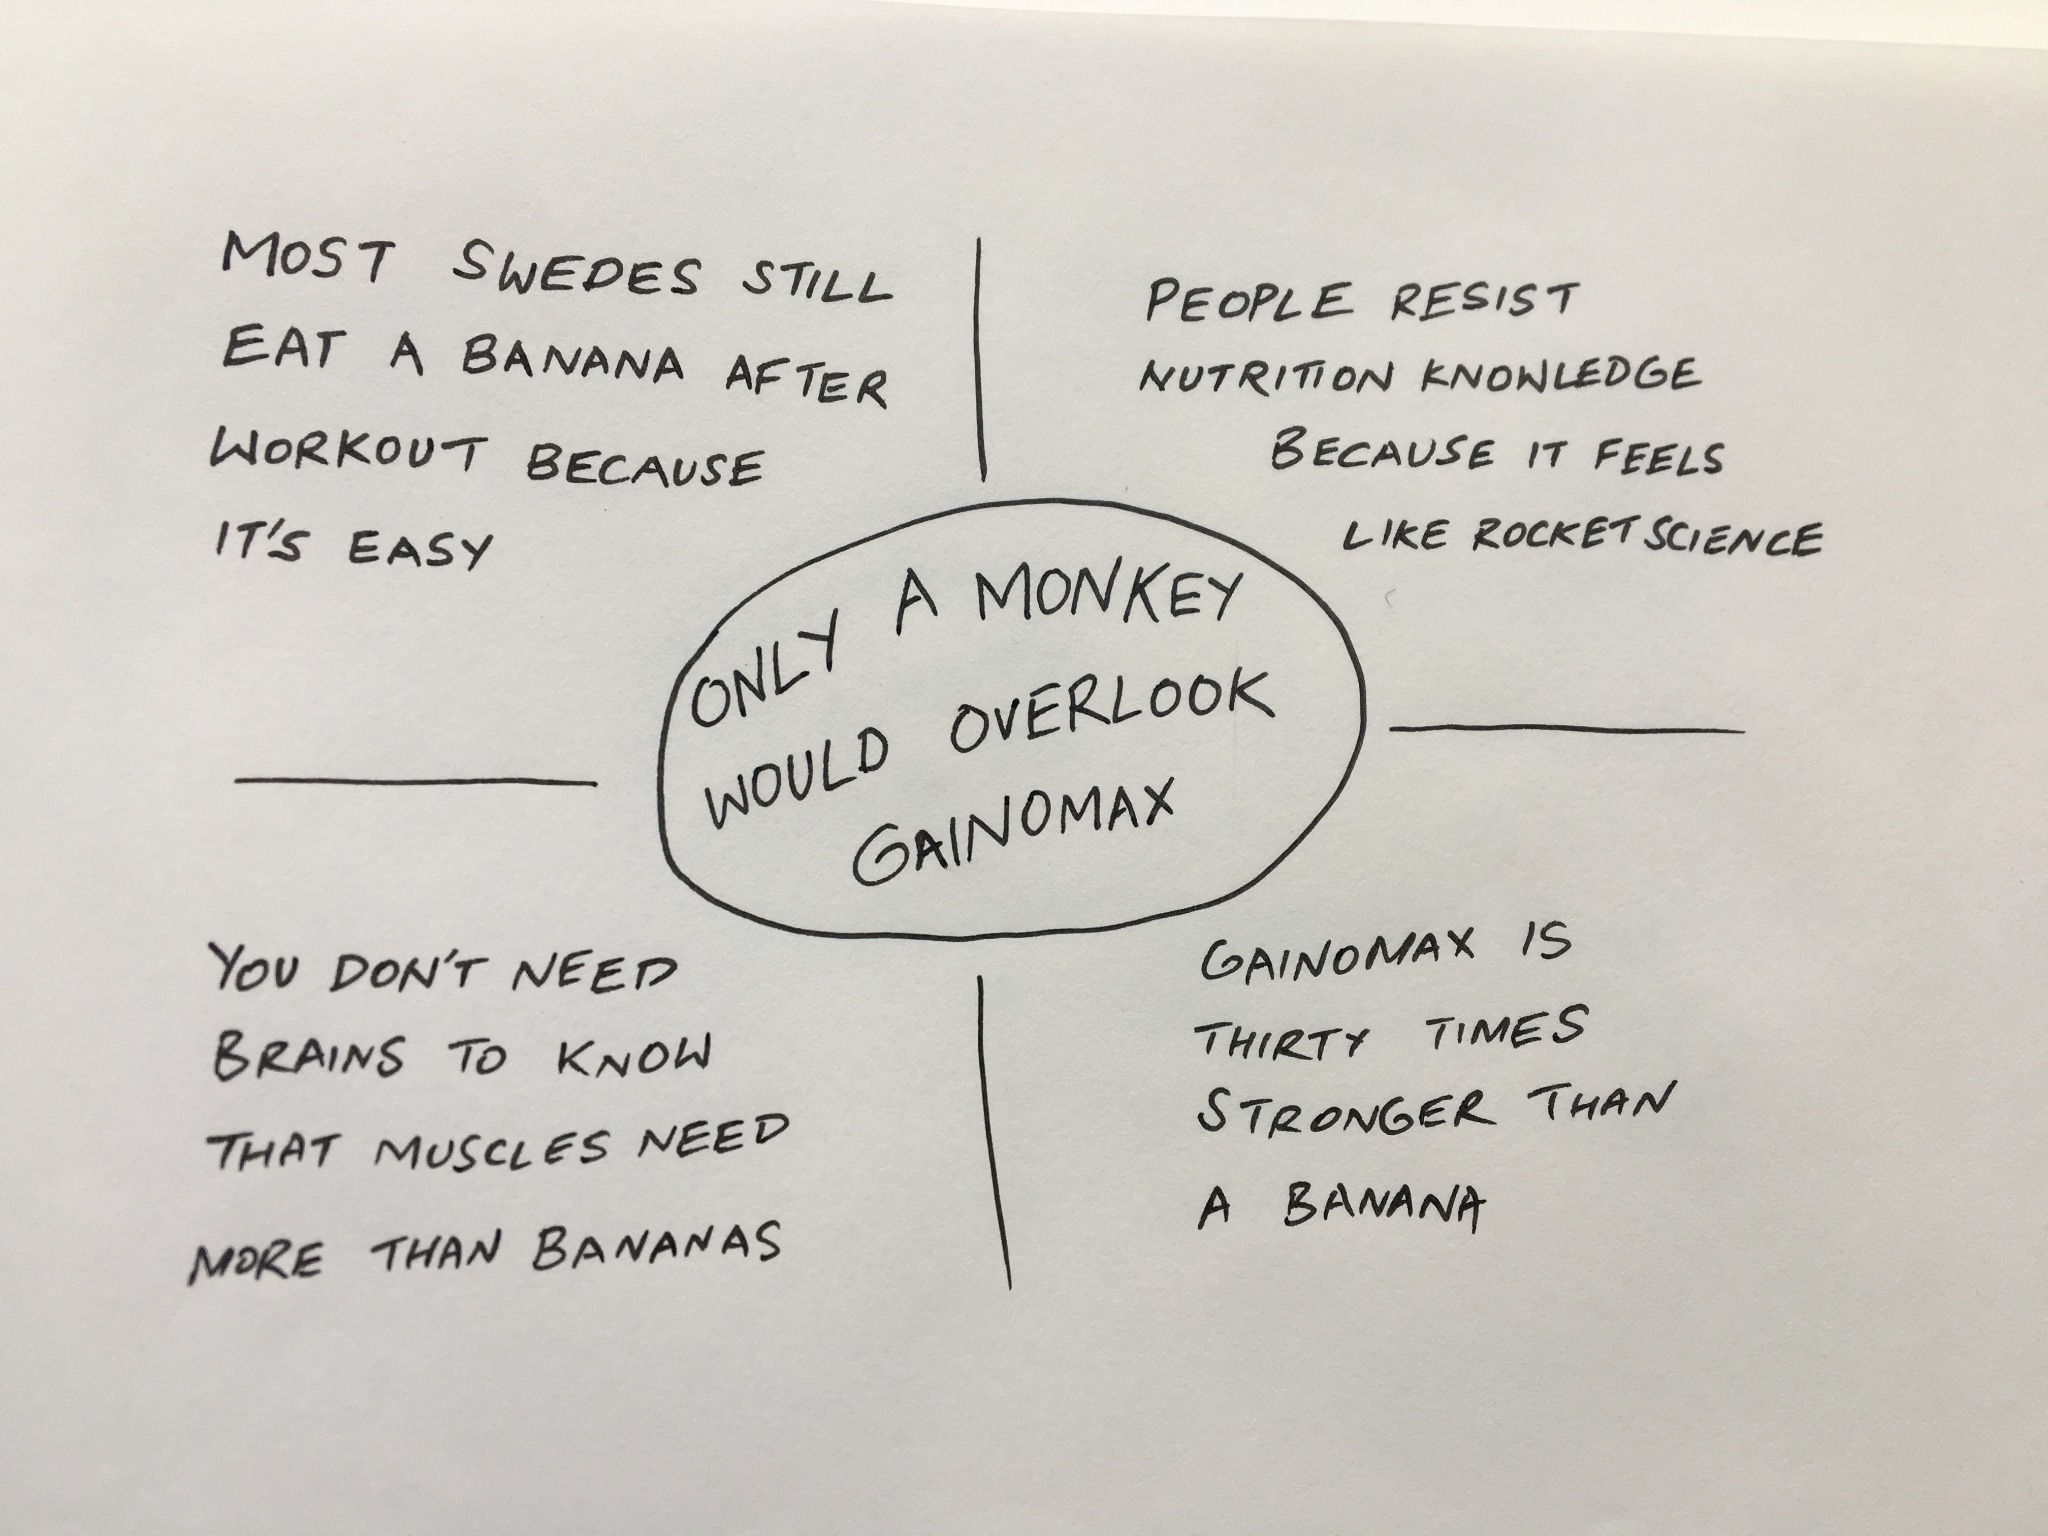 MOST SWEDES STILL
EAT A BANANA AFTER
WORKOUT BECAUSE
IT'S EASY
PEOPLE RESIST
NUTRITION KNOWLEDGE
BECAUSE IT FEELS
LIKE ROCKET SCIENCE
ONLY A MONKEY
WOULD OVERLOOK
GAINOMAX
YOU DON'T NEED
BRAINS TO KNOW
THAT MUSCLES NEED
MORE THAN BANANAS
GAINOMAX IS
THIRTY TIMES
STRONGER THAN
A BANANA